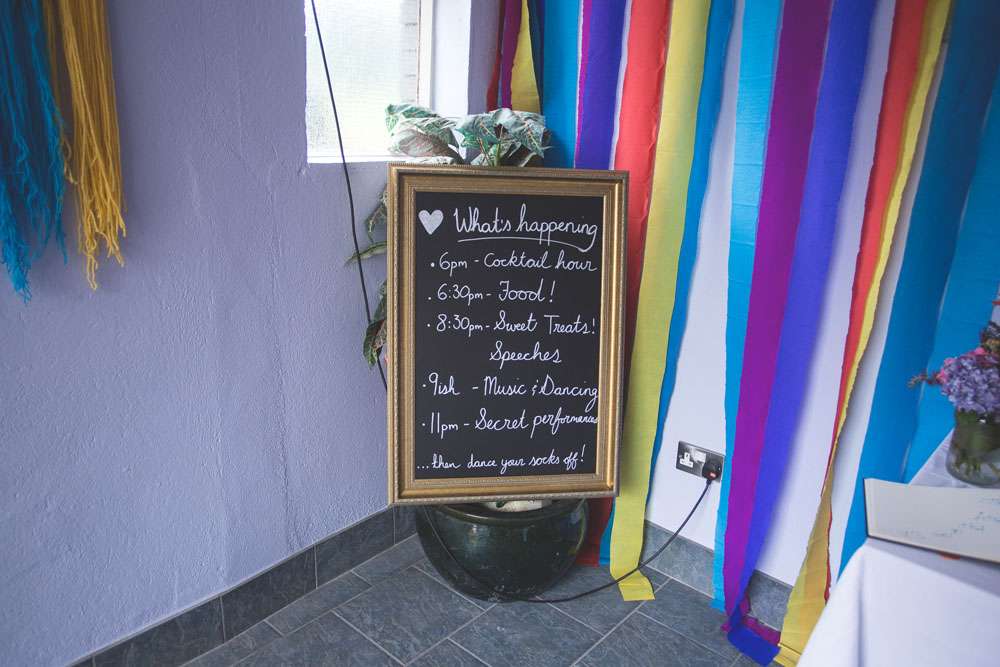 What's happening
• 6pm - Cocktail hour
• 6:30pm - Food!
• 8:30pm - Sweet Treats!
Speeches
• 9ish - Music & Dancing
• 11pm - Secret performances
...then dance your socks off!